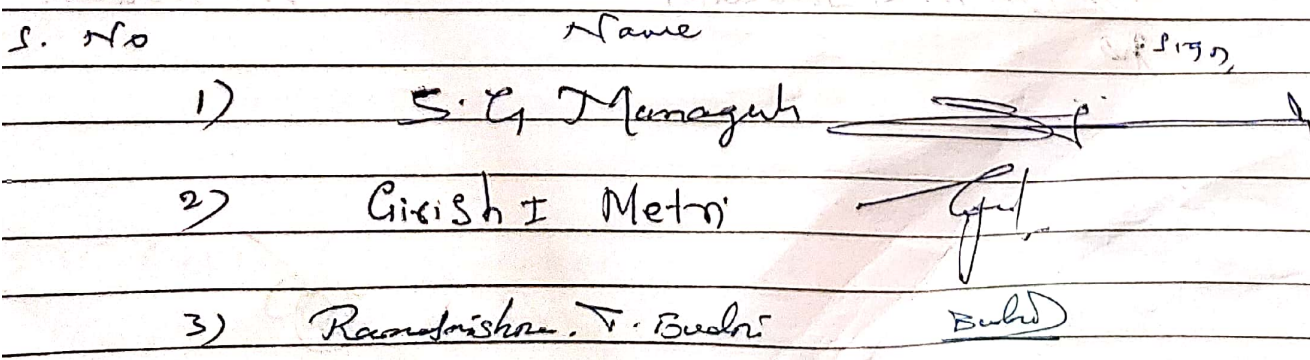 S. No Name Sign,
1) S. G Managuli
2) Girish I Metri
3) Ramakrishna. T. Budni